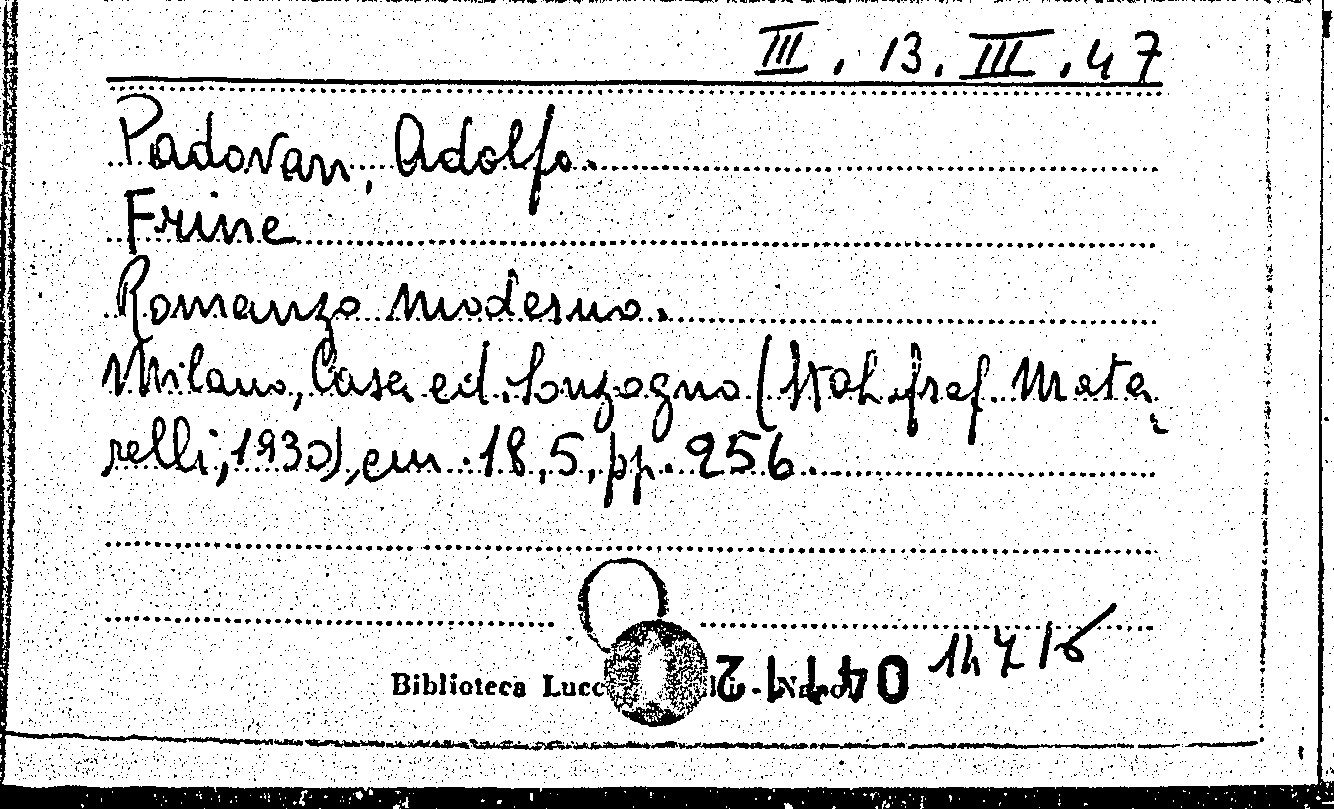 III. 13. III. 47
Padovan, Adolfo.
Frine
Romanzo moderno.
Milano, Casa ed. Sonzogno (Stab. graf. Mata-
relli, 1930), cm. 18,5, pp. 256.
Biblioteca - Napoli